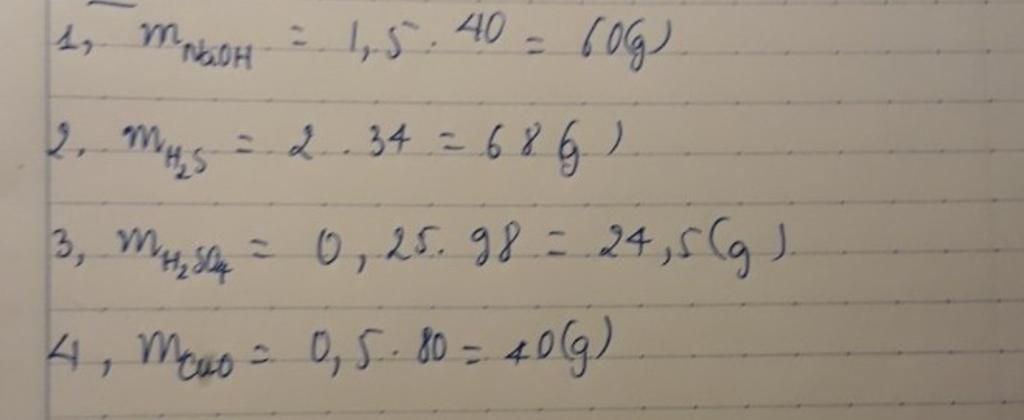 1, m NaOH = 1,5 . 40 = 60(g)
2, m H₂S = 2 . 34 = 68 (g)
3, m H₂SO₄ = 0,25. 98 = 24,5(g)
4, m CuO = 0,5 . 80 = 40(g)